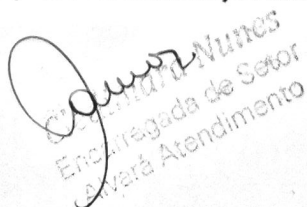 Nunes
Encarregada de Setor
Alvará Atendimento